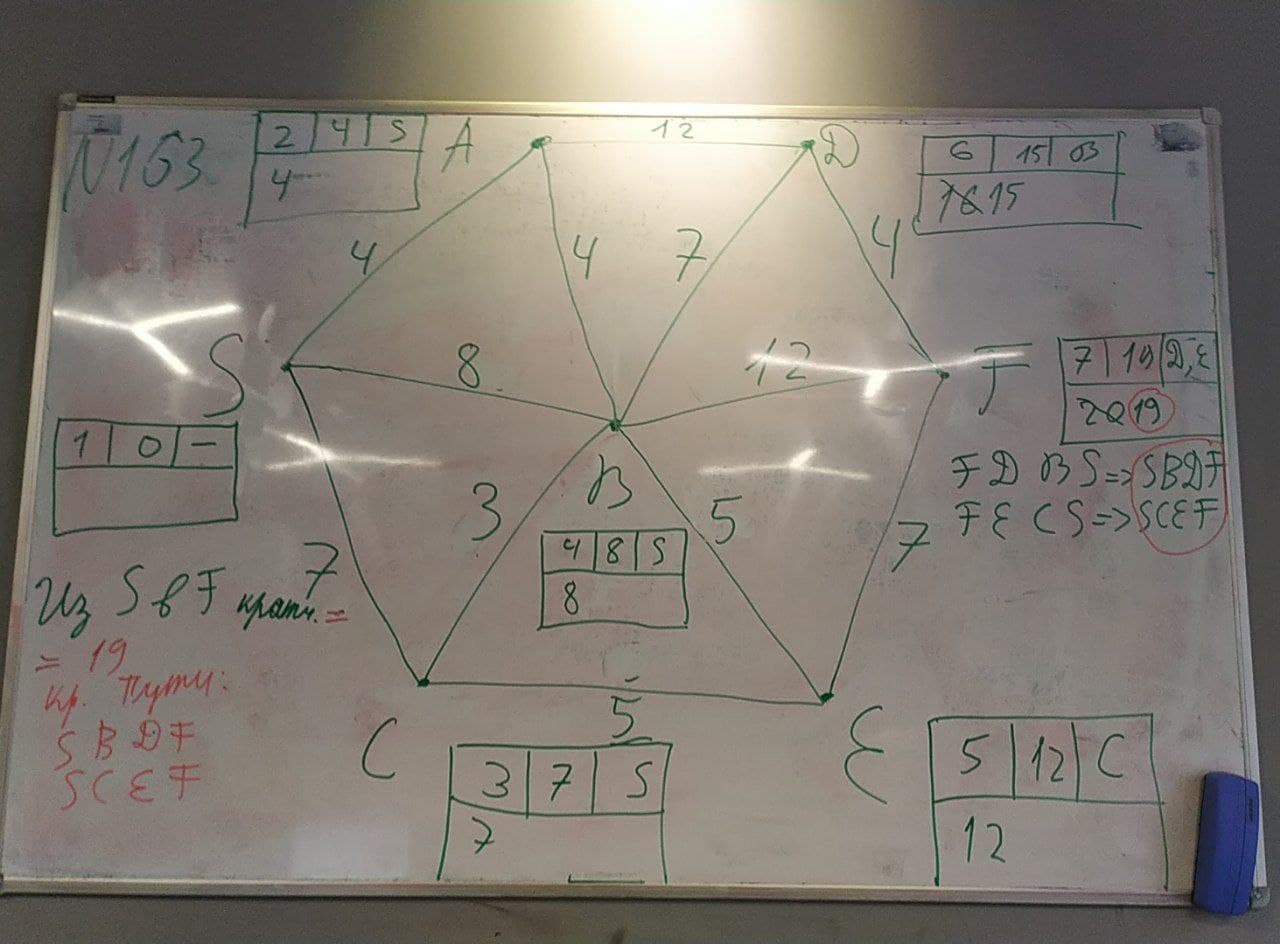 N163
2 4 S
4
A
12
D
6 15 B
16 15
4
4
7
4
S
8
12
F
7 19 D,E
20 19
1 0 -
B
F D B S => SBDF
F E C S => SCEF
3
5
7
4 8 S
8
7
Из S в F кратч. =
= 19
кр. Пути:
S B D F
S C E F
5
C
3 7 S
7
E
5 12 C
12